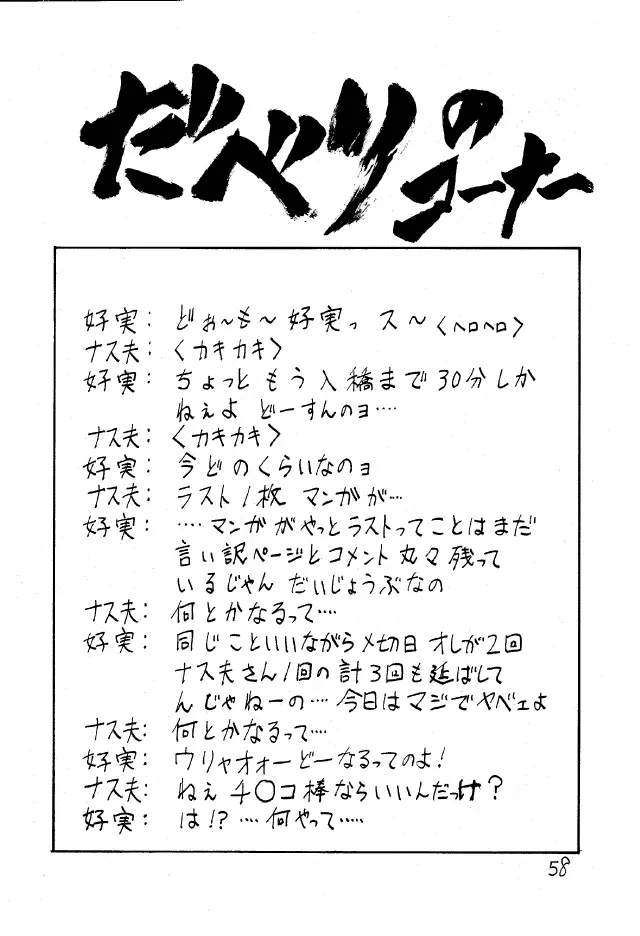 だべりの
コーナー
好実： どぉ〜も〜 好実っ ス〜〈ヘロヘロ〉
ナス夫：〈カキカキ〉
好実： ちょっと もう 入稿まで 30分しか
ねぇよ どーすんのョ‥‥
ナス夫：〈カキカキ〉
好実： 今どのくらいなのョ
ナス夫： ラスト1枚 マンガが‥‥
好実： ‥‥マンガがやっとラストってことはまだ
言い訳ページとコメント丸々残って
いるじゃん だいじょうぶなの
ナス夫： 何とかなるって‥‥
好実： 同じこといいながら〆切日 オレが2回
ナス夫さん1回の計3回も延ばして
んじゃねーの‥‥今日はマジでヤベェよ
ナス夫： 何とかなるって‥‥
好実： ウリャオォーどーなるってのよ！
ナス夫： ねぇ チ〇コ棒ならいいんだっけ？
好実： は!? ‥‥何やって‥‥‥
58